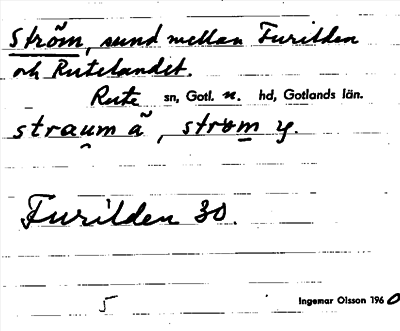 Ström, sund mellan Furilden
och Rutelandet.
Rute sn, Gotl. n. hd, Gotlands län.
straum ä, strøm y.
Furilden 30.
5
Ingemar Olsson 1960